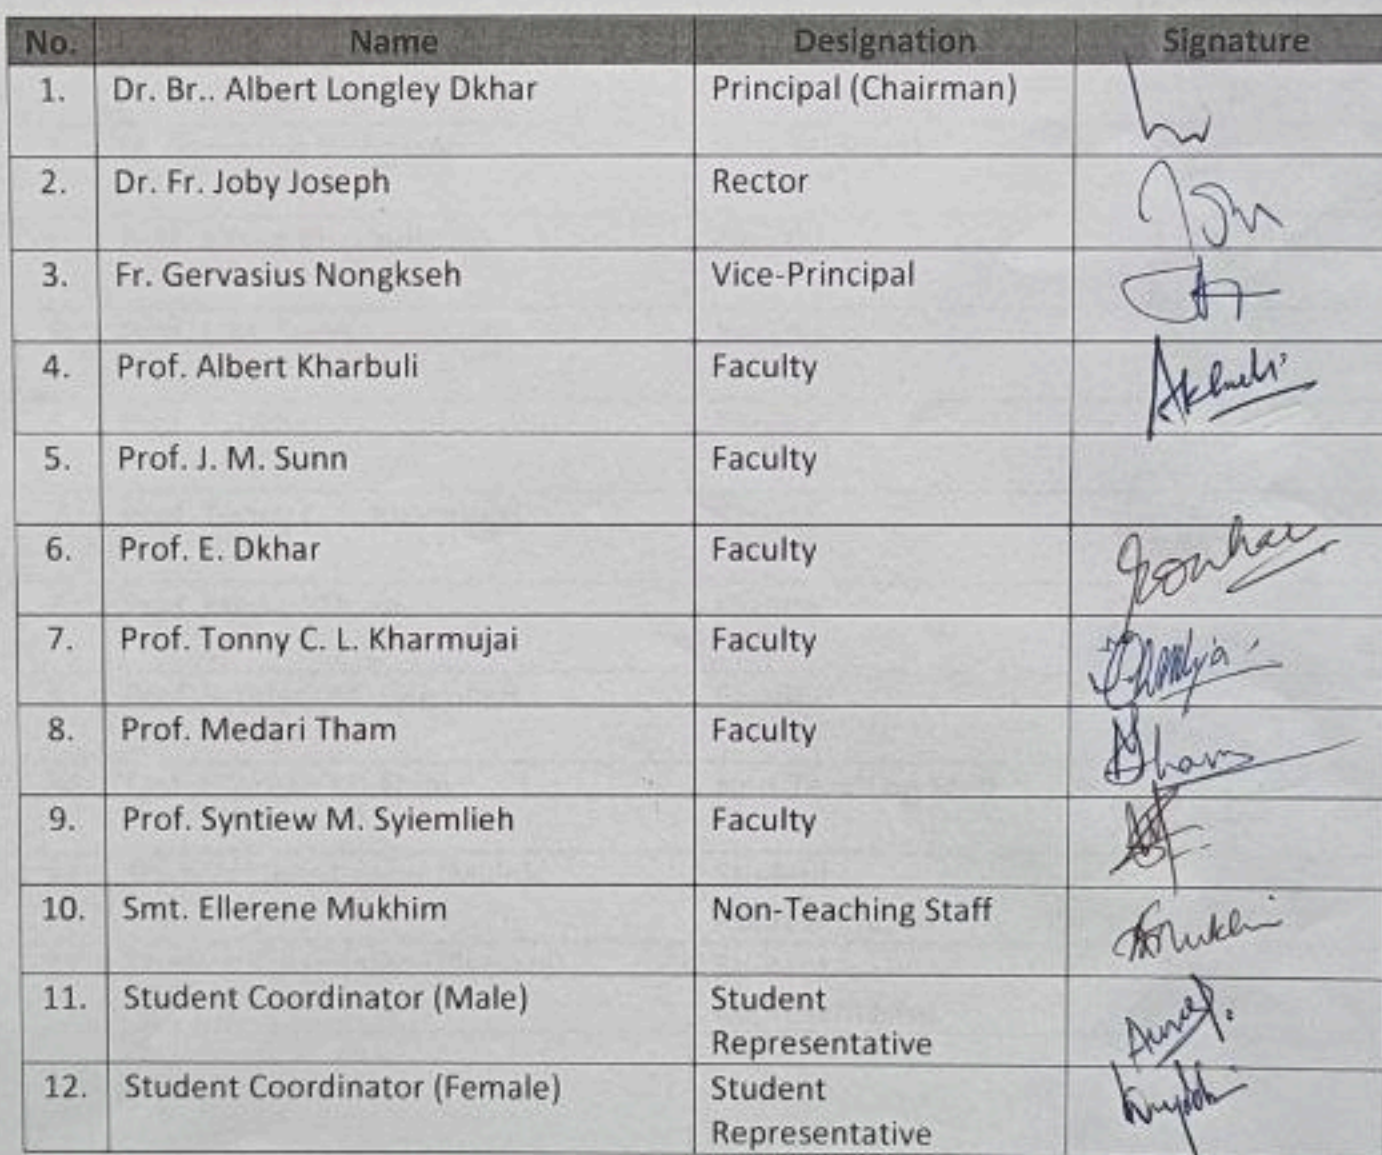 No. Name Designation Signature
1. Dr. Br.. Albert Longley Dkhar Principal (Chairman)
2. Dr. Fr. Joby Joseph Rector
3. Fr. Gervasius Nongkseh Vice-Principal
4. Prof. Albert Kharbuli Faculty
5. Prof. J. M. Sunn Faculty
6. Prof. E. Dkhar Faculty
7. Prof. Tonny C. L. Kharmujai Faculty
8. Prof. Medari Tham Faculty
9. Prof. Syntiew M. Syiemlieh Faculty
10. Smt. Ellerene Mukhim Non-Teaching Staff
11. Student Coordinator (Male) Student
Representative
12. Student Coordinator (Female) Student
Representative